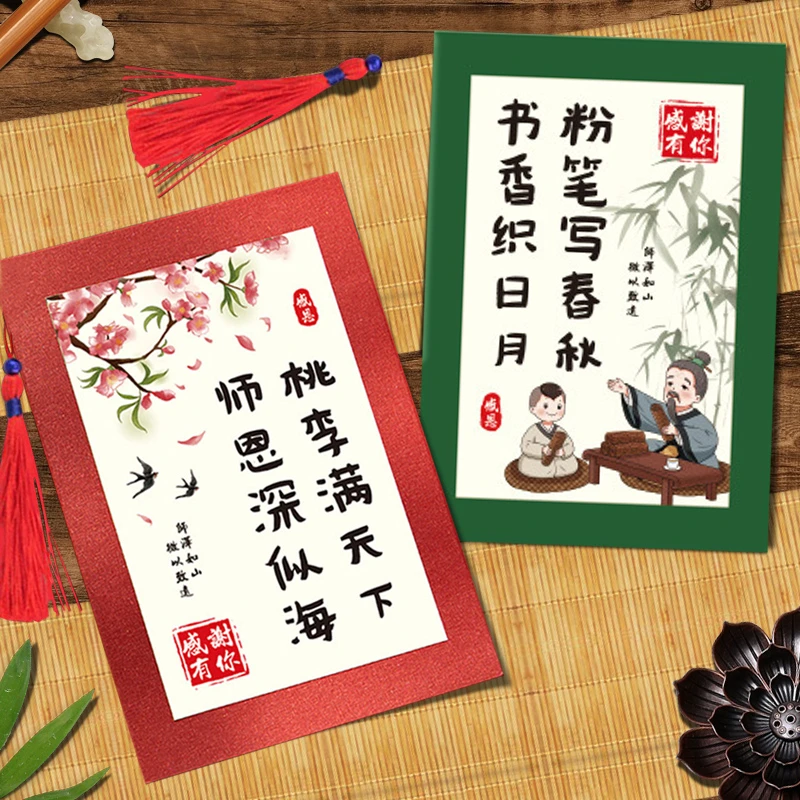 桃李满天下
师恩深似海
感恩
師澤如山
微以致遠
感謝
有你
粉笔写春秋
书香织日月
感謝
有你
師澤如山
微以致遠
感恩